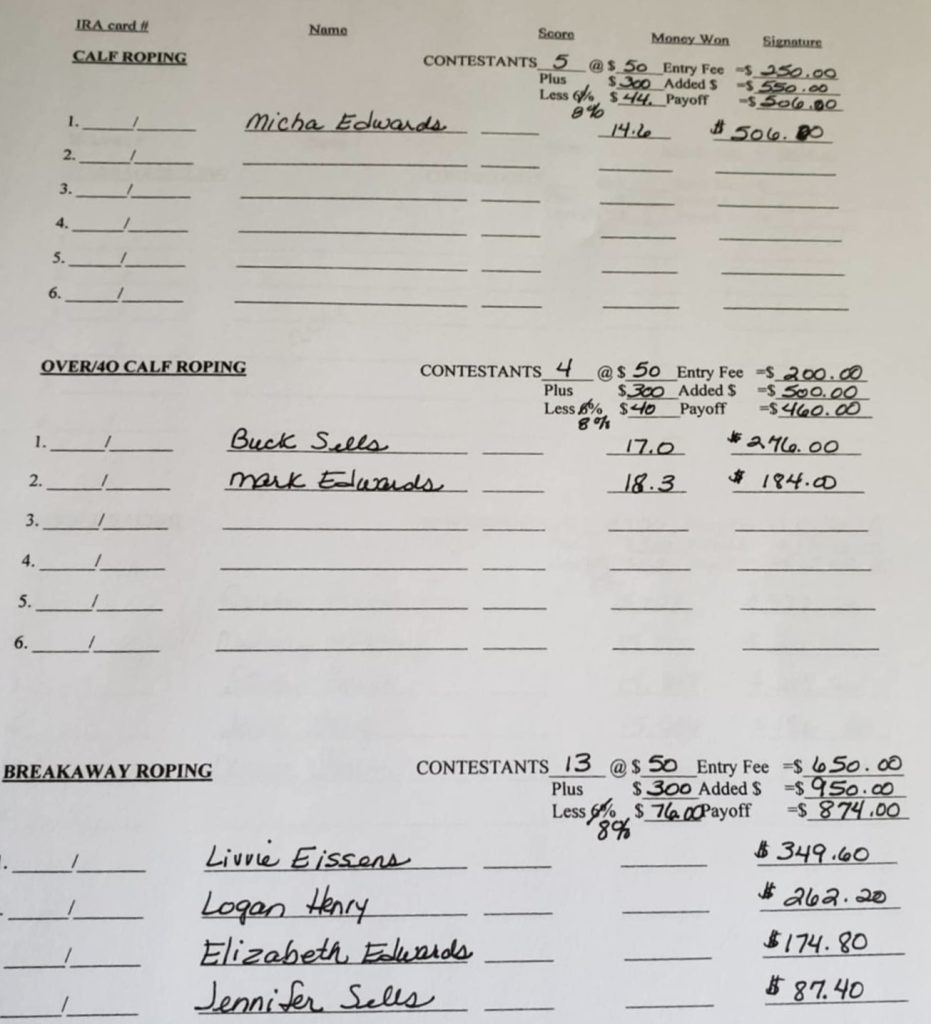 IRA card # Name Score Money Won Signature
CALF ROPING CONTESTANTS 5 @ $ 50 Entry Fee =$ 250.00
Plus $300 Added $ =$ 550.00
Less 6% $ 44. Payoff =$ 506.00
8%
1. / Micha Edwards 14.6 $ 506.00
2. /
3. /
4. /
5. /
6. /
OVER/40 CALF ROPING CONTESTANTS 4 @ $ 50 Entry Fee =$ 200.00
Plus $300 Added $ =$ 500.00
Less 6% $40 Payoff =$ 460.00
8%
1. / Buck Sells 17.0 $ 276.00
2. / Mark Edwards 18.3 $ 184.00
3. /
4. /
5. /
6. /
BREAKAWAY ROPING CONTESTANTS 13 @ $ 50 Entry Fee =$ 650.00
Plus $ 300 Added $ =$ 950.00
Less 6% $ 76.00 Payoff =$ 874.00
8%
. / Livvie Eissens $ 349.60
/ Logan Henry $ 262.20
/ Elizabeth Edwards $174.80
/ Jennifer Sells $ 87.40